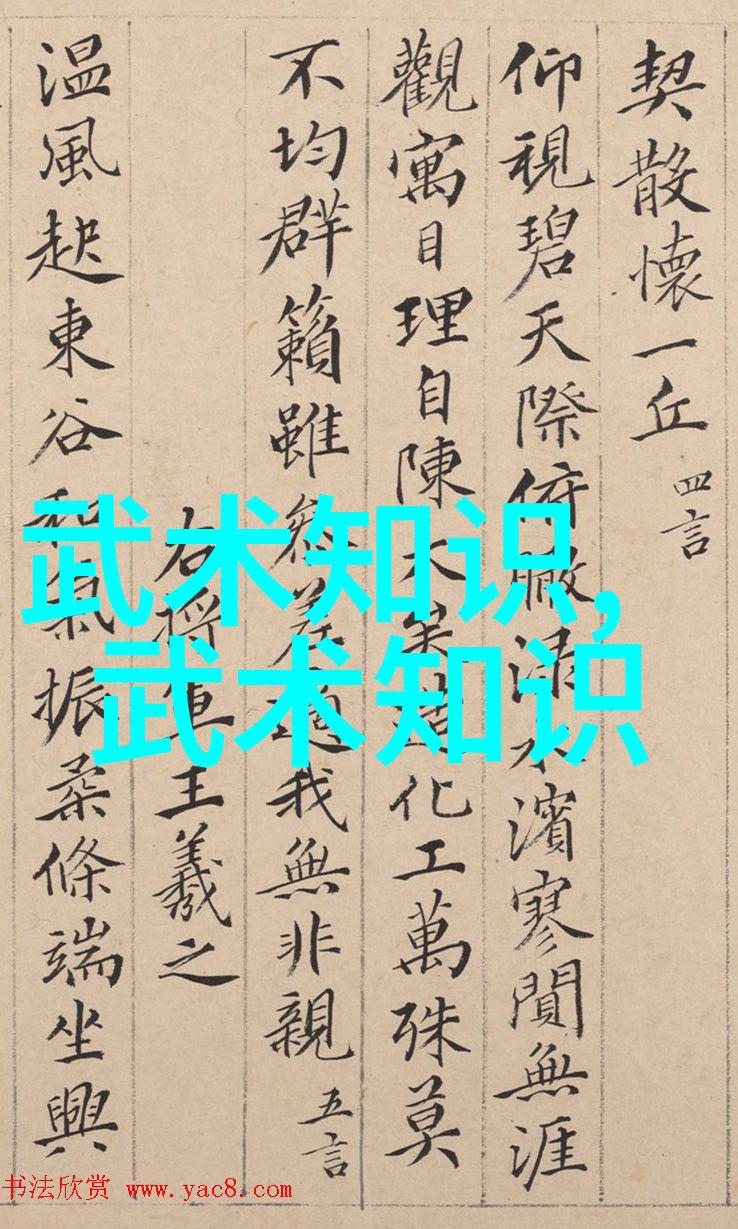 契散懷一丘 四言
仰視碧天際俯瞰淥水濱寥閴無涯
觀寓目理自陳大矣造化工萬殊莫
不均群籟雖參差適我無非親 五言
右將軍王羲之
温風起東谷和氣振柔條端坐興
武术知识,
武术知识
书法欣赏 www.yac8.com